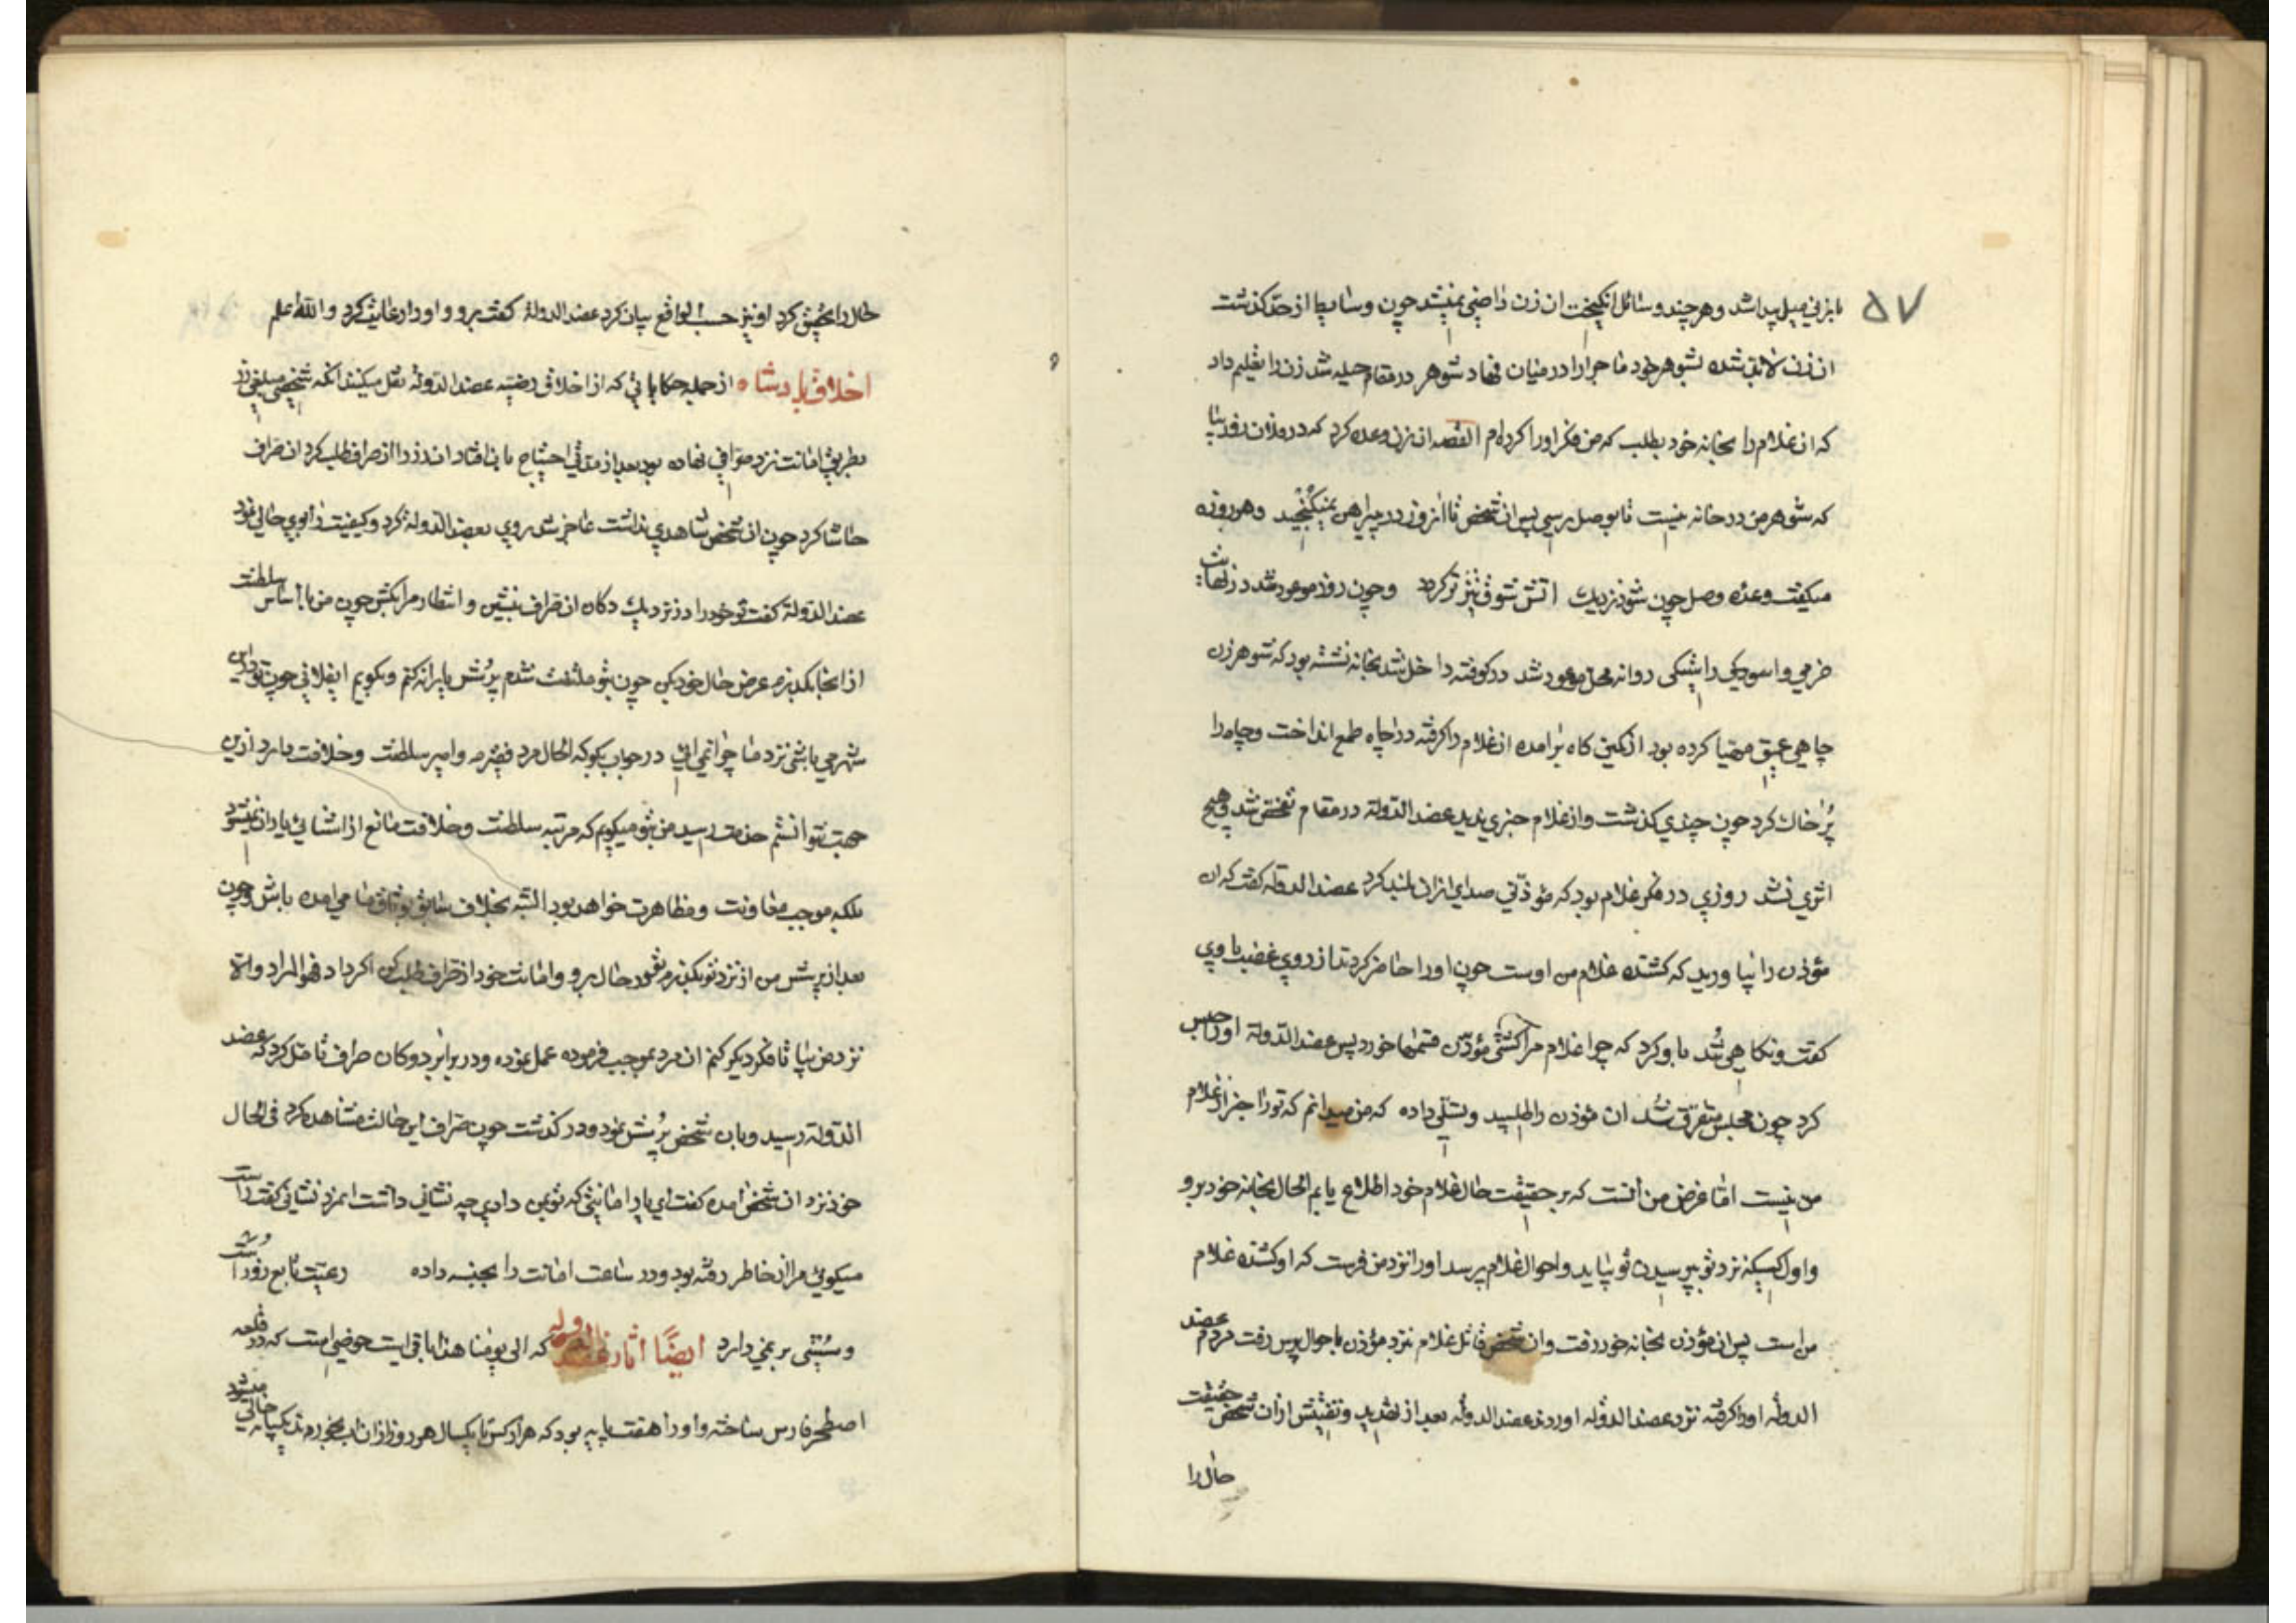 ۵۷
با زنی میل پیدا شد و هر چند وسائل انکیخت ان زن راضی نمیشد چون وسایط از حد کذشت
ان زن لاعلاج شده بشوهر خود ماجرا را در میان نهاد شوهر در مقام حیله شد زن را تعلیم داد
که ان غلام را بخانه خود بطلب که من فکر او را کرده ام القصه ان زن وعده کرد که در فلان روز بیا
که شوهر من در خانه نیست تا بوصل برسی پس ان شخص تا انروز در پیراهن نمیکنجید و هر روزه
میکفت وعده وصل چون شود نزدیك اتش شوق تیزتر کردد و چون روز موعود شد در نهایت
خرمی و اسودکی روانه محل موعود شد در کوفته داخل شد بخانه نشسته بود که شوهر زن
چاهی عمیق مهیا کرده بود از کمین کاه برامده ان غلام را کرفته در ان چاه طمع انداخت و چاه را
پر خاك کرد چون چندی کذشت و از غلام خبری ندید عضد الدولة در مقام تفحص شد و هیچ
اثری نشد روزی در فکر غلام بود که مؤذنی صدای اذان بلند کرد عضد الدوله کفت که ان
مؤذن را بیاورید که کشنده غلام من اوست چون او را حاضر کردند از روی غضب با وی
کفت و نکاهی تند با و کرد که چرا غلام مرا کشتی مؤذن قسمها خورد پس عضد الدولة او را حبس
کرد چون مجلس متفرق شد ان مؤذن را طلبید و تسلی داده که من میدانم که تو را خبر از غلام
من نیست اما غرض من انست که بر حقیقت حال غلام خود اطلاع یابم الحال بخانه خود برو
و اول کسیکه نزد تو بپرسیدن تو بیاید و احوال غلام پرسد او را نزد من فرست که او کشنده غلام
من است پس ان مؤذن بخانه خود رفت و ان شخص قاتل غلام نزد مؤذن باحوال پرس رفت مردم عضد
الدوله او را کرفته نزد عضد الدوله اوردند عضد الدوله بعد از تهدید و تفتیش از ان شخص حقیقت
حال را
حال را تحقیق کرد او نیز حسب الواقع بیان کرد عضد الدولة کفت برو و او را رعایت کرد و الله اعلم
اخلاق پادشاه از جمله حکایاتی که از اخلاق رضیه عضد الدولة نقل میکنند انکه شخصی مبلغی زر
بطریق امانت نزد صرافی نهاده بود بعد از مدتی احتیاج بان افتاد ان زر را از صراف طلب کرد ان صراف
حاشا کرد چون ان شخص شاهدی نداشت عاجز شد روی بعضد الدولة کرد و کیفیت را بوی حالی نمود
عضد الدولة کفت تو خود را در نزدیك دکان ان صراف بنشین و انتظار مرا بکش چون من با اساس سلطنت
از انجا بکذرم عرض حال خود بکن چون بتو ملتفت شدم پرسش یارانه کنم و بکویم ای فلانی چون تو در این
شهر می باشی نزد ما چرا نمی ائی در جواب بکو که الحال مرد فقیرم و امیر سلطنت و خلافت دارد ازین
جهت نتوانستم خدمت رسید من بتو میکویم که مرتبه سلطنت و خلافت مانع از اشنائی یاران نمیشود
بلکه موجب معاونت و مظاهرت خواهد بود البته بخلاف سابق بوثاق ما می امده باش و چون
بعد از پرسش من از نزد تو بکذرم تو خود در حال برو و امانت خود از صراف طلب کن اکر داد فهو المراد و الا
نزد من بیا تا فکر دیکر کنم ان مرد بموجب فرموده عمل نموده و در برابر دوکان صراف تأمل کرد که عضد
الدولة رسید و بان شخص پرسش نمود و در کذشت چون صراف این حالت مشاهده کرد فی الحال
خود نزد ان شخص امده کفت ای یار امانتی که تو بمن دادی چه نشانی داشت ان مرد نشانی کفت راست
میکوئی مرا از خاطر رفته بود و در ساعت امانت را بجنسه داده رعیت تابع زور است
و سستی بر نمی دارد ایضا اثار عضد الدوله که الی یومنا هذا باقی است حوضی است که در قلعه
اصطخر فارس ساخته و او را هفت پایه بود که هزار کس تا یکسال هر روز از ان اب بخورد یکپایه خالی میشود